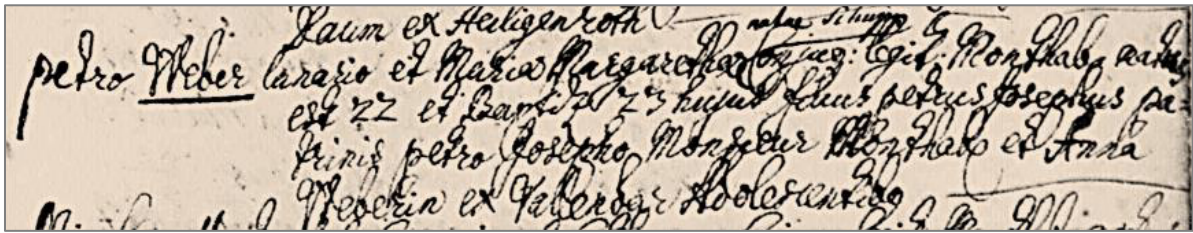 Daum ex Heiligenroth
natae Schupp
petro Weber lanario et Maria Margaretha Conjug: legit: Monthab. natus
est 22 et Baptiz. 23 hujus filius petrus Josephus pa-
trinis petro Josepho Monsieur Monthab. et Anna
Weberin ex Vallendar Adolescentibus